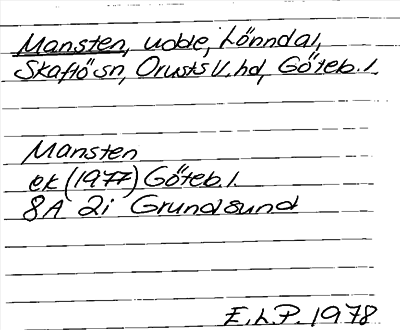 Mansten, uoble, Lönndal,
Skaftö sn, Orusts V. hd, Göteb. l.
Mansten
ek (1977) Göteb. l.
8A 2i Grundsund
E.L.P. 1978